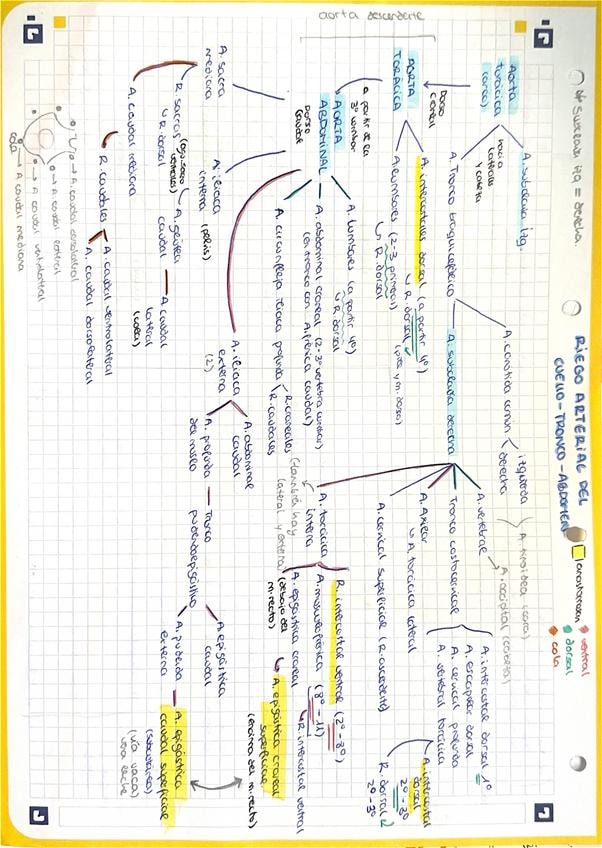 RIEGO ARTERIAL DEL
CUELLO - TRONCO - ABDOMEN
anastomosan
ventral
dorsal
cola
= derecha
aorta descendente
Aorta
torácica
(arco)
A. subclavia izq.
hacia
laterales
y cabeza
A. Tronco braquiocefálico
A. carótida común
izquierda
derecha
A. tiroidea (cara)
A. occipital (cabeza)
A. subclavia derecha
A. vertebral
Tronco costocervical
A. intercostal dorsal 1º
A. escapular dorsal
A. cervical profunda
A. vertebral torácica
A. intercostal
dorsal
2º-3º
R. dorsal
2º-3º
A. Axilar
A. torácica lateral
A. cervical superficial (R. ascendente)
A. torácica
interna
R. intercostal ventral (2º-8º)
A. musculofrénica (8º-11)
R. intercostal ventral
A. epigástrica craneal
(debajo del
m. recto)
A. epigástrica craneal
superficial
(encima del m. recto)
(también hay
lateral y externa)
Dorso
craneal
AORTA
TORÁCICA
A. intercostales dorsal (a partir 4º)
R. dorsal
A. lumbares (2-3 primeras)
R. dorsal (piel y m. dorso)
a partir de la
3º lumbar
AORTA
ABDOMINAL
Dorso
caudal
A. lumbares (a partir 4º)
R. dorsal
A. abdominal craneal (2-3º vertebra lumbar)
(en tronco con A. frénica caudal)
A. circunfleja iliaca profunda
R. craneales
R. caudales
A. iliaca
externa
(2)
A. abdominal
caudal
A. profunda
del muslo
Tronco
pudendoepigástrico
A. epigástrica
caudal
A. pudenda
externa
A. epigástrica
caudal superficial
(subcutánea)
(vía vaca)
vena leche
A. iliaca
interna
(pelvis)
A. glútea
caudal
A. caudal
lateral
(cola)
A. sacra
mediana
R. sacras
R. dorsal
A. caudal
mediana
R. caudales
A. caudal ventrolateral
A. caudal dorsolateral
A. caudal dorsolateral
A. caudal lateral
A. caudal ventrolateral
A. caudal mediana
cola